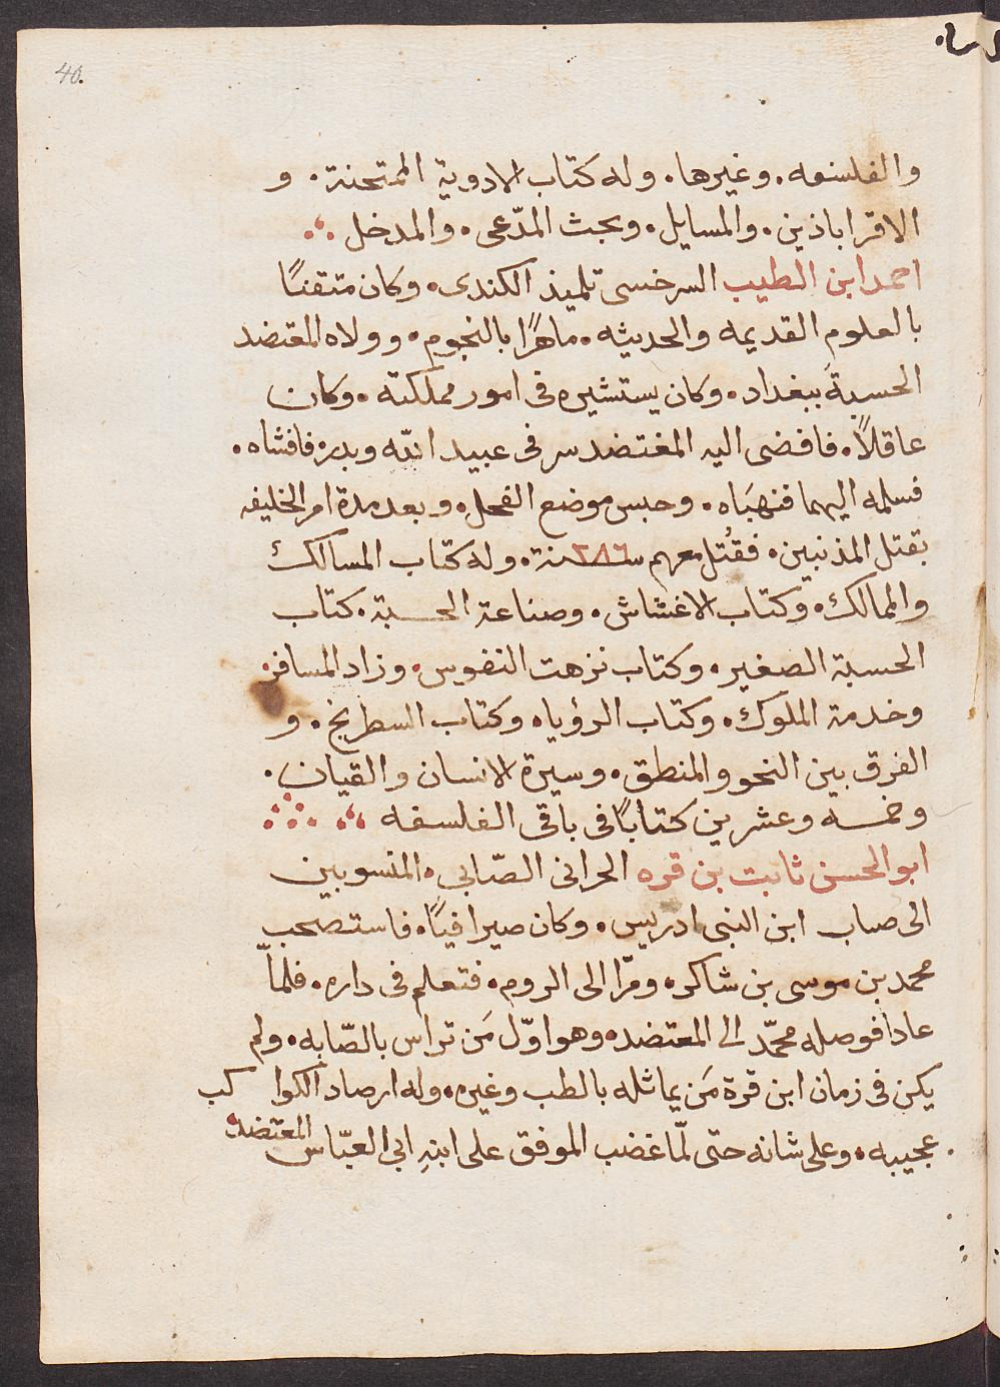 40.
والفلسفه. وغيرها. وله كتاب الادوية الممتحنة. و
الاقراباذين. والمسايل. وبحث المدّعى. والمدخل
احمد ابن الطيب السرخسى تلميذ الكندى. وكان متقنًا
بالعلوم القديمه والحديثه. ماهرًا بالنجوم. وولاه المعتضد
الحسبةَ ببغداد. وكان يستشيره فى امور مملكته. وكان
عاقلاً. فافضى اليه المغتضد سر فى عبيد الله وبدر. فافشاه.
فسلمه اليهما فنهبَاه. وحبس موضع الفحل. وبعد مدة امر الخليفه
بقتل المذنبين. فقُتل معهم سنة ٢٨٦. وله كتاب المسالك
والممالك. وكتاب الاغشاش. وصناعة الحسبة. كتاب
الحسبة الصغير. وكتاب نزهت النفوس. وزاد المسافر.
وخدمة الملوك. وكتاب الرؤيا. وكتاب السطرنج. و
الفرق بين النحو والمنطق. وسيرة الانسان والقيان.
وخمسه وعشرين كتاباً فى باقى الفلسفه
ابو الحسن ثابت بن قره الحرانى الصّابى. المنسوبين
الى صاب ابن النبى ادريس. وكان صيرافيًا. فاستصحب
محمد بن موسى بن شاكر. ومرّا الى الروم. فتعلم فى داره. فلمّا
عادا فوصله محمّد الى المعتضد. وهو اوّل مَن تراس بالصّابه. ولم
يكن فى زمان ابن قرة مَن يماثله بالطب وغيره. وله ارصاد الكواكب
عجيبه. وعلى شانه حتى لمّا غضب الموفق على ابنهِ ابى العبّاس المعتضد